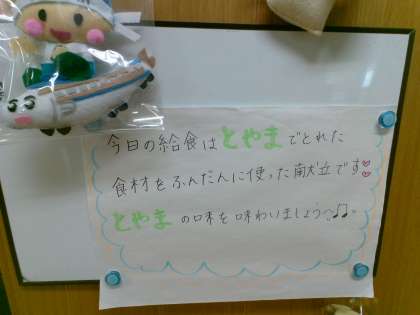 今日の給食はとやまでとれた
食材をふんだんに使った献立です
とやまの味を味わいましょう♫